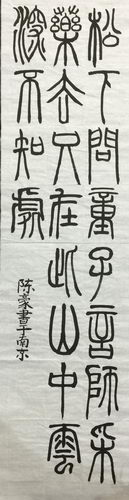 松下問童子言師采
藥去只在此山中雲
深不知處
陈豪書于南京